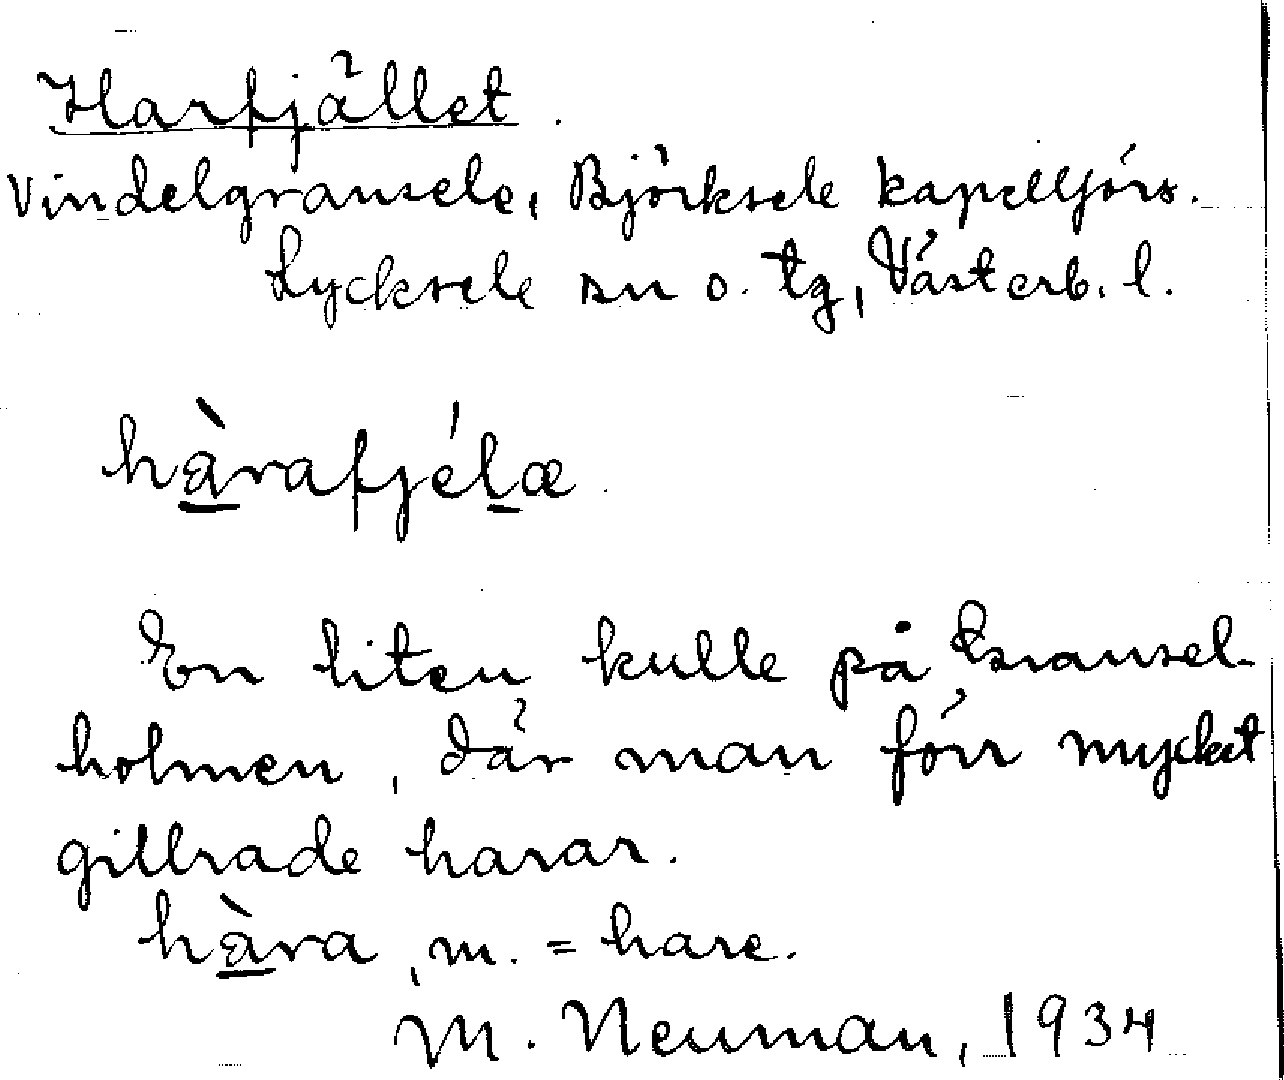 Harfjället.
Vindelgransele, Björksele kapellförs.
Lycksele sn o. tg, Västerb. l.
hàrafjélæ
En liten kulle på Gransel-
holmen, där man förr mycket
gillrade harar.
hàra, m. = hare.
M. Neuman, 1934